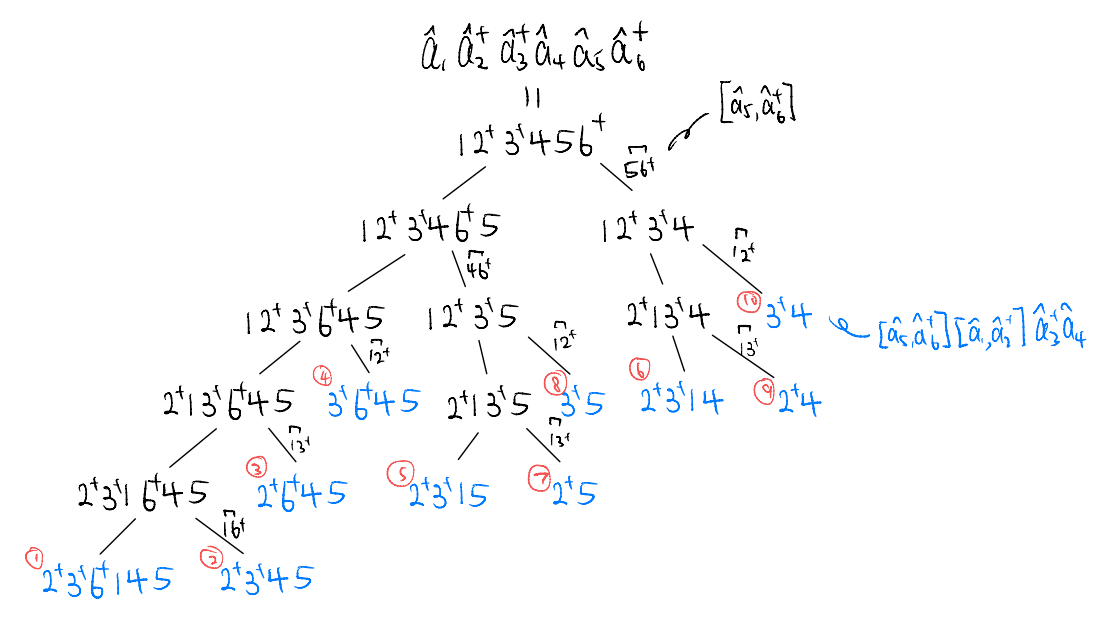 â₁ â₂⁺ â₃⁺ â₄ â₅ â₆⁺
=
[â₅, â₆⁺]
1 2⁺ 3⁺ 4 5 6⁺
56⁺
1 2⁺ 3⁺ 4 6⁺ 5
1 2⁺ 3⁺ 4
46⁺
12⁺
1 2⁺ 3⁺ 6⁺ 4 5
1 2⁺ 3⁺ 5
2⁺ 1 3⁺ 4
⑩ 3⁺ 4
[â₅, â₆⁺] [â₁, â₂⁺] â₃⁺ â₄
12⁺
12⁺
13⁺
2⁺ 1 3⁺ 6⁺ 4 5
④ 3⁺ 6⁺ 4 5
2⁺ 1 3⁺ 5
⑧ 3⁺ 5
⑥ 2⁺ 3⁺ 1 4
⑨ 2⁺ 4
13⁺
13⁺
2⁺ 3⁺ 1 6⁺ 4 5
③ 2⁺ 6⁺ 4 5
⑤ 2⁺ 3⁺ 1 5
⑦ 2⁺ 5
16⁺
① 2⁺ 3⁺ 6⁺ 1 4 5
② 2⁺ 3⁺ 4 5